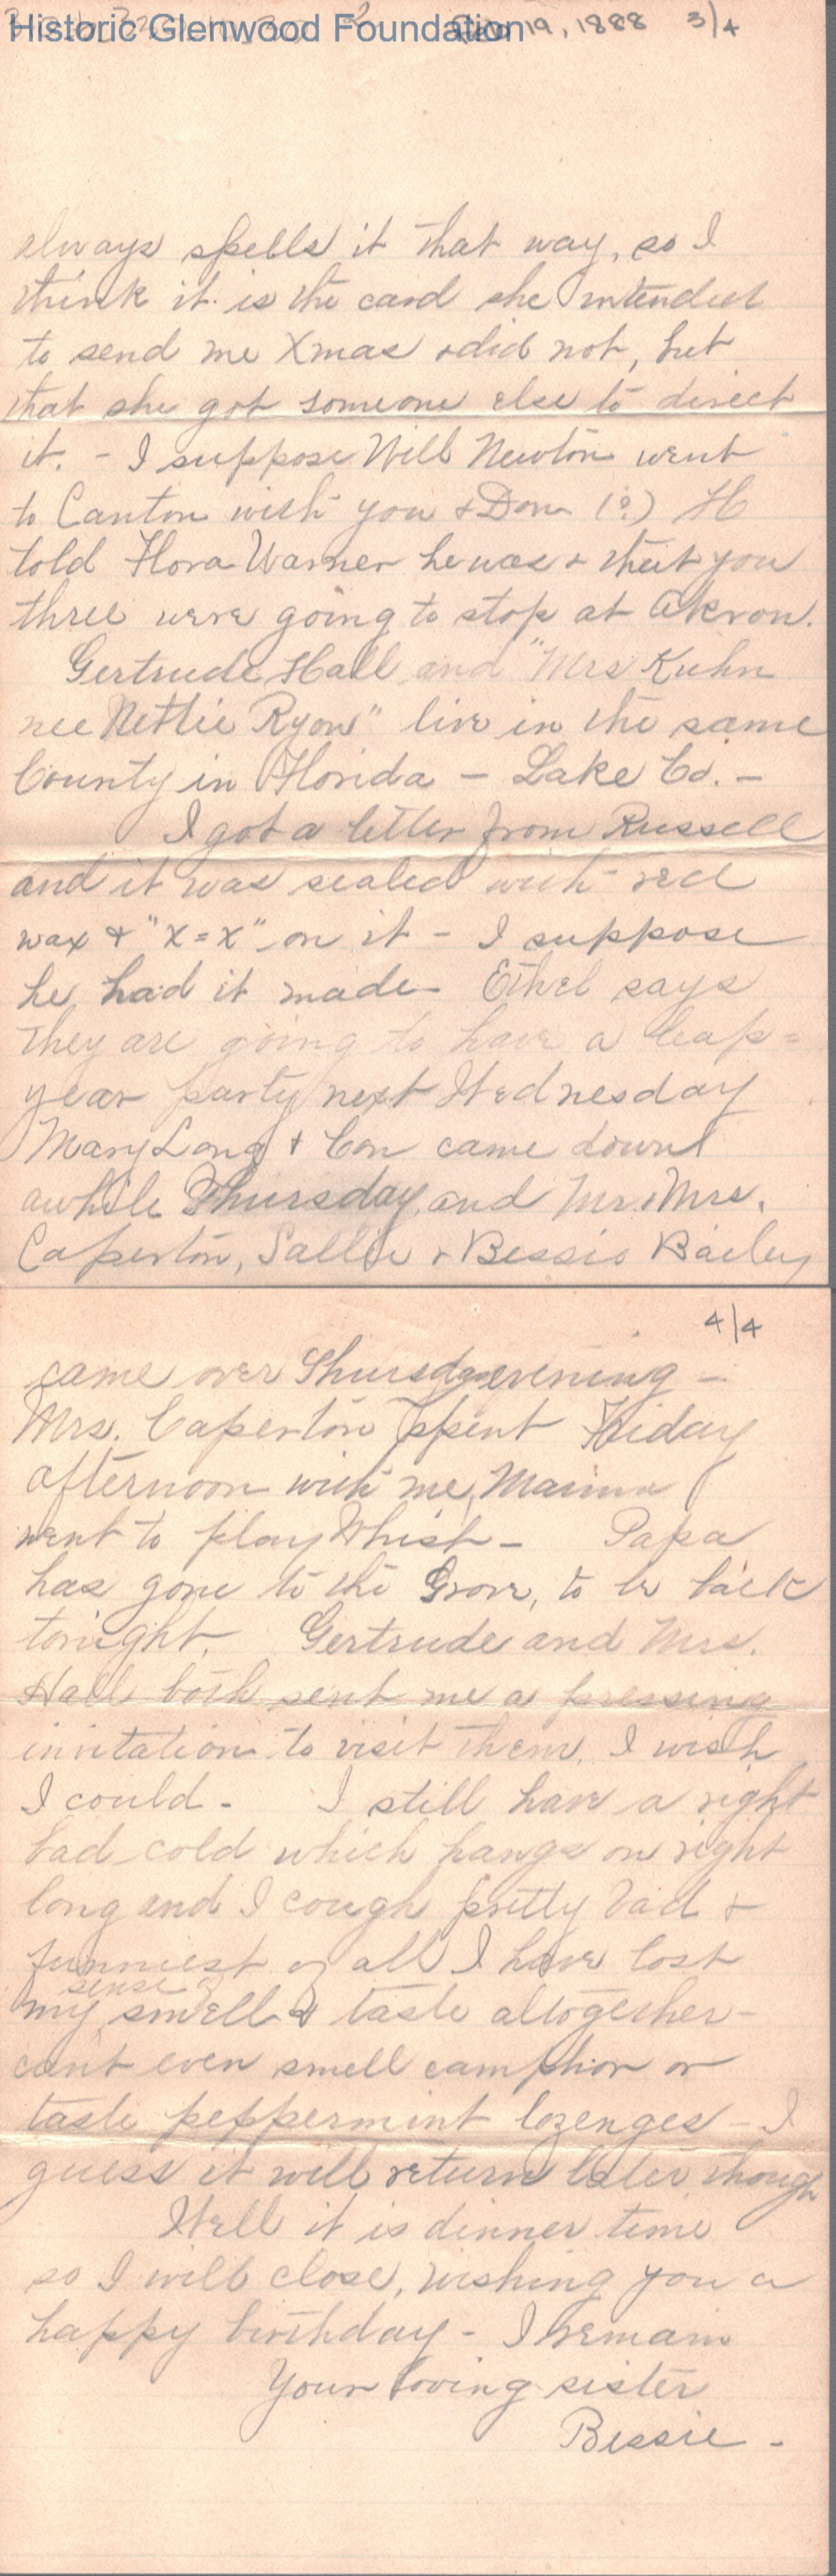 Historic Glenwood Foundation
19, 1888 3/4
always spells it that way, so I
think it is the card she intended
to send me Xmas & did not, but
that she got someone else to direct
it. - I suppose Will Newton went
to Canton with you & Don (?) H
told Flora Warner he was & that you
three were going to stop at Akron.
Gertrude Hall and "Mrs Kuhn
nee Nettie Ryon" live in the same
County in Florida - Lake Co. -
I got a letter from Russell
and it was sealed with red
wax & "X=X" on it - I suppose
he had it made - Ethel says
they are going to have a leap=
year party next Wednesday
Mary Long & Con came down
awhile Thursday and Mr. & Mrs.
Caperton, Sallie & Bessie Bailey
4/4
came over Thursday evening -
Mrs. Caperton spent Friday
afternoon with me, Mamma
went to play Whist - Papa
has gone to the Grove, to be back
tonight. Gertrude and Mrs.
Hall both sent me a pressing
invitation to visit them. I wish
I could - I still have a right
bad cold which hangs on right
long and I cough pretty bad &
funniest of all I have lost
my sense of smell & taste altogether -
cant even smell camphor or
taste peppermint lozenges - I
guess it will return later though
Well it is dinner time
so I will close, wishing you a
happy birthday - I remain
Your loving sister
Bessie -